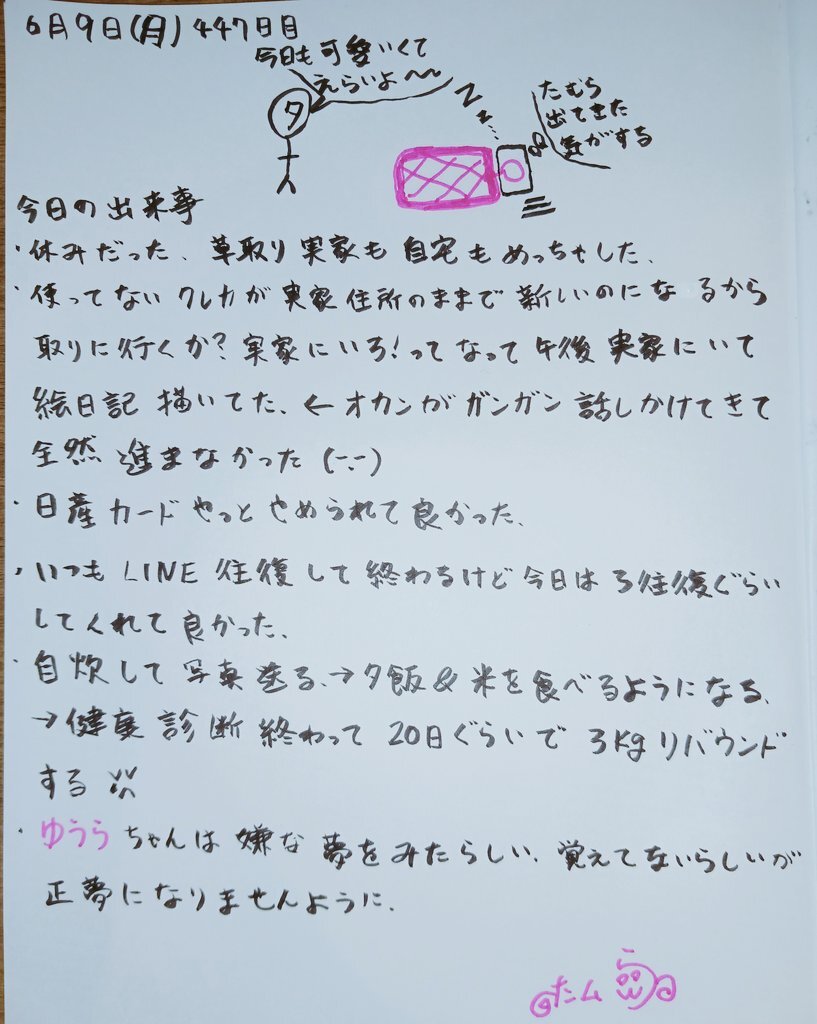 6月9日(月) 447日目
今日も可愛いくて
えらいよ〜〜
タ
Zz...
たむら
出てきた
気がする
今日の出来事
・休みだった、草取り実家も自宅もめっちゃした、
・使ってないクレカが実家住所のままで新しいのになるから
取りに行くか?実家にいろ!ってなって午後実家にいて
絵日記描いてた、←オカンがガンガン話しかけてきて
全然進まなかった(-.-)
・日産カードやっとやめられて良かった、
・いつもLINE往復して終わるけど今日は3往復ぐらい
してくれて良かった、
・自炊して写真送る、→夕飯&米を食べるようになる、
→健康診断終わって20日ぐらいで3kgリバウンド
する
・ゆうらちゃんは嫌な夢をみたらしい、覚えてないらしいが
正夢になりませんように、
@たム